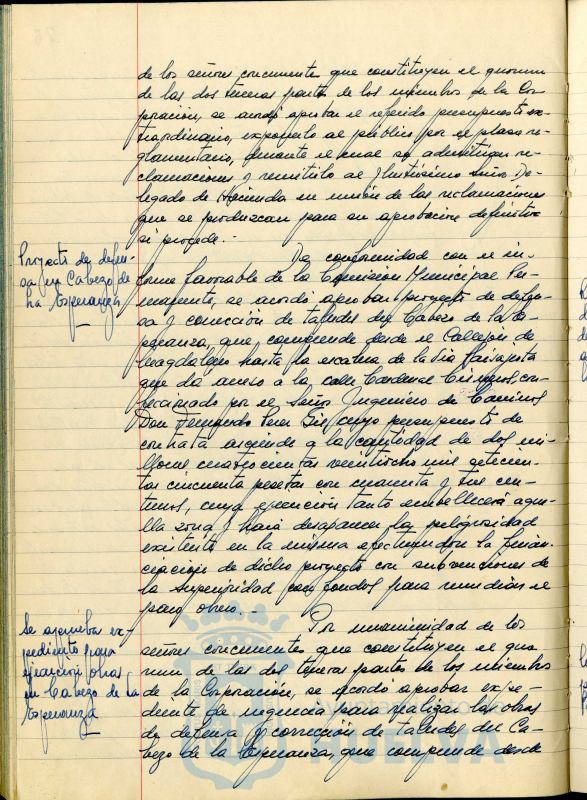 de los señores concurrentes que constituyen el quorum
de las dos terceras partes de los miembros de la Cor-
poración, se acordó aprobar el referido presupuesto ex-
traordinario, exponerlo al público por el plazo re-
glamentario, durante el cual se admitirán re-
clamaciones y remitirlo al Ilustrísimo Señor De-
legado de Hacienda en unión de las reclamaciones
que se produzcan para su aprobación definitiva
si procede.-
Proyecto de defen-
sa en Cabezo de
la Esperanza
De conformidad con el in-
forme favorable de la Comisión Municipal Per-
manente, se acordó aprobar proyecto de defen-
sa y corrección de taludes del Cabezo de la Es-
peranza, que comprende desde el Callejón de
Magdaleno hasta la escalera de la Vía Paisajista
que da acceso a la calle Cardenal Cisneros, con-
feccionado por el Señor Ingeniero de Caminos
Don Fernando cuyo presupuesto de
contrata asciende a la cantidad de dos mi-
llones cuatrocientas veintiocho mil setecien-
tas cincuenta pesetas con cuarenta y tres cén-
timos, cuya ejecución tanto embellecerá aque-
lla zona y hará desaparecer la peligrosidad
existente en la misma efectuándose la finan-
ciación de dicho proyecto con subvenciones de
la Superioridad con fondos para remediar el
paro obrero.
Se aprueba ex-
pediente para
ejecución obras
en Cabezo de la
Esperanza
Por unanimidad de los
señores concurrentes que constituyen el quo-
rum de las dos terceras partes de los miembros
de la Corporación, se acordó aprobar expe-
diente de urgencia para realizar las obras
de defensa y corrección de taludes del Ca-
bezo de la Esperanza, que comprende desde
Ayuntamiento de
HUELVA